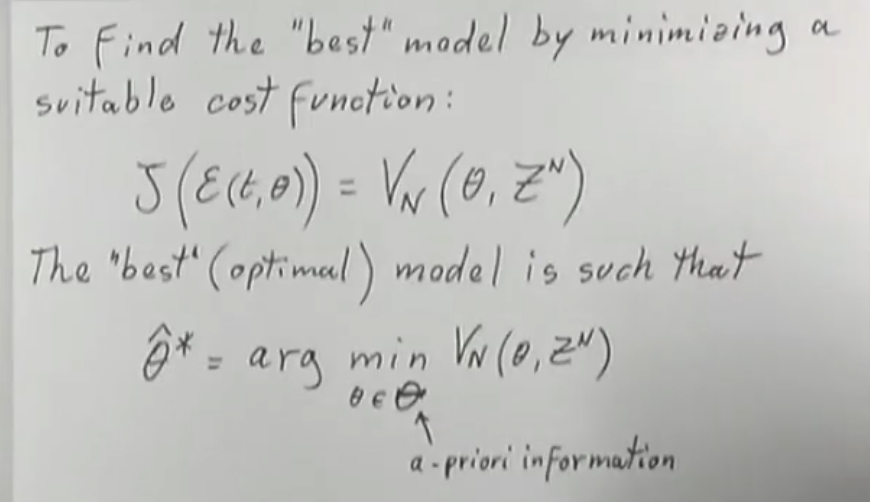 To find the "best" model by minimizing a
suitable cost function:
J(ε(t,θ)) = V_N(θ, Z^N)
The "best" (optimal) model is such that
θ̂* = arg min V_N(θ, Z^N)
θ ∈ Θ
a-priori information